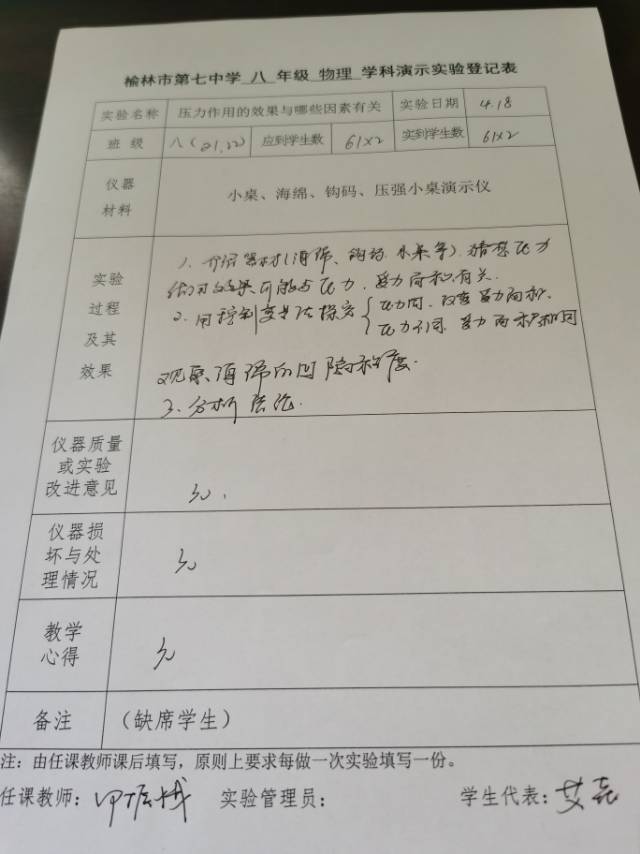 榆林市第七中学 八 年级 物理 学科演示实验登记表
实验名称 压力作用的效果与哪些因素有关 实验日期 4.18
班级 八(21,22) 应到学生数 61×2 实到学生数 61×2
仪器材料 小桌、海绵、钩码、压强小桌演示仪
实验过程及其效果
1. 介绍器材(海绵、钩码、小桌等).猜想压力
作用效果可能与压力,受力面积有关.
2. 用控制变量法探究 { 压力同,改变受力面积.
压力不同,受力面积相同
观察海绵的凹陷程度.
3. 分析结论.
仪器质量或实验改进意见 无.
仪器损坏与处理情况 无
教学心得 无
备注 (缺席学生)
注:由任课教师课后填写,原则上要求每做一次实验填写一份。
任课教师: 实验管理员: 学生代表:艾